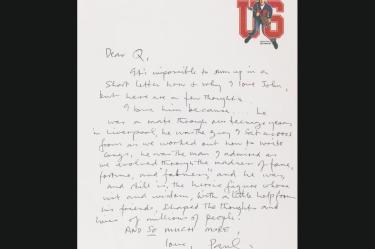 US
Dear Q,
It's impossible to sum up in a
short letter how & why I love John,
but here are a few thoughts.
I love him because.... he
was a mate through our teenage years
in Liverpool, he was the guy I sat across
from as we worked out how to write
songs, he was the man I admired as
we evolved through the madness of fame,
fortune, and "fabness," and he was,
and still is, the heroic figure whose
wit and wisdom, with a little help from
his friends, shaped the thoughts and
lives of millions of people.
AND SO MUCH MORE,
love, Paul